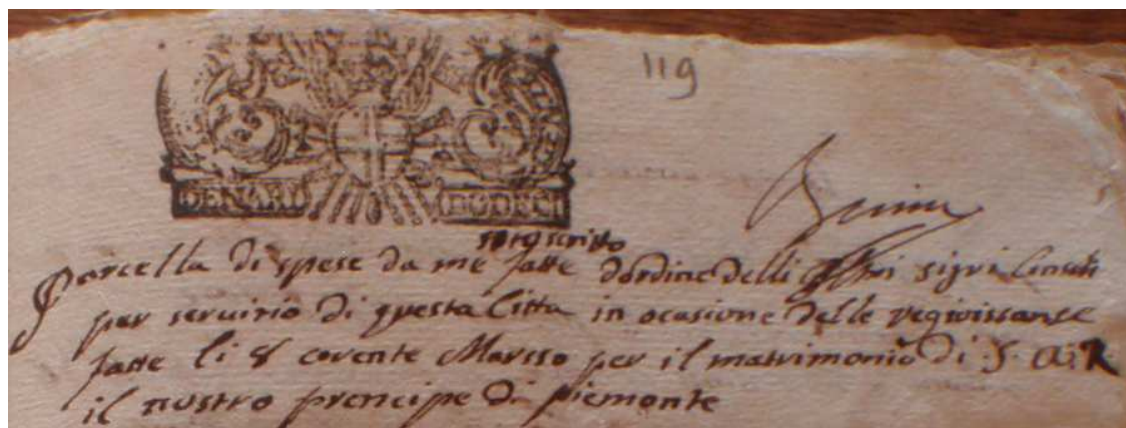 119
DENARI DODECI
sotoscritto
Parcella di spese da me fatte d'ordine delli sigri Consoli
per seruitio di questa Citta in ocasione delle regioissanse
fatte li 8 corente Marsso per il matrimonio di S. A. R
il nostro prencipe di piemonte